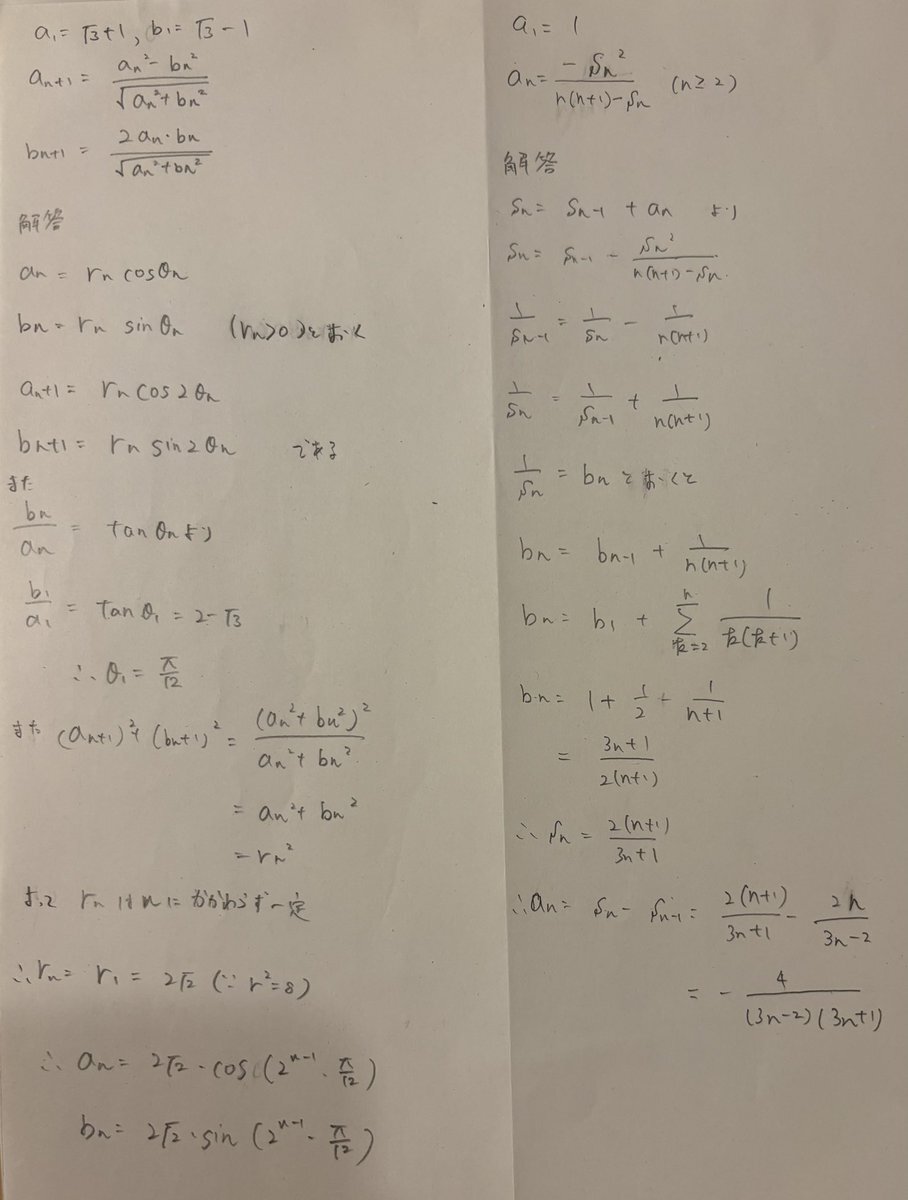 a₁ = √3+1, b₁ = √3 - 1
aₙ₊₁ = (aₙ² - bₙ²)/√(aₙ² + bₙ²)
bₙ₊₁ = (2aₙ・bₙ)/√(aₙ² + bₙ²)
解答
aₙ = rₙ cosθₙ
bₙ = rₙ sinθₙ (rₙ>0)とおく
aₙ₊₁ = rₙ cos2θₙ
bₙ₊₁ = rₙ sin2θₙ である
また
bₙ/aₙ = tanθₙより
b₁/a₁ = tanθ₁ = 2-√3
∴ θ₁ = π/12
また (aₙ₊₁)² + (bₙ₊₁)² = (aₙ² + bₙ²)²/(aₙ² + bₙ²)
= aₙ² + bₙ²
= rₙ²
よって rₙはnにかかわらず一定
∴ rₙ = r₁ = 2√2 (∵ r²=8)
∴ aₙ = 2√2・cos(2ⁿ⁻¹・π/12)
bₙ = 2√2・sin(2ⁿ⁻¹・π/12)
a₁ = 1
aₙ = -Sₙ²/(n(n+1)-Sₙ) (n≥2)
解答
Sₙ = Sₙ₋₁ + aₙ より
Sₙ = Sₙ₋₁ - Sₙ²/(n(n+1)-Sₙ)
1/Sₙ₋₁ = 1/Sₙ - 1/(n(n+1))
1/Sₙ = 1/Sₙ₋₁ + 1/(n(n+1))
1/Sₙ = bₙとおくと
bₙ = bₙ₋₁ + 1/(n(n+1))
bₙ = b₁ + Σ[k=2→n] 1/(k(k+1))
bₙ = 1 + 1/2 - 1/(n+1)
= (3n+1)/(2(n+1))
∴ Sₙ = 2(n+1)/(3n+1)
∴ aₙ = Sₙ - Sₙ₋₁ = 2(n+1)/(3n+1) - 2n/(3n-2)
= - 4/((3n-2)(3n+1))